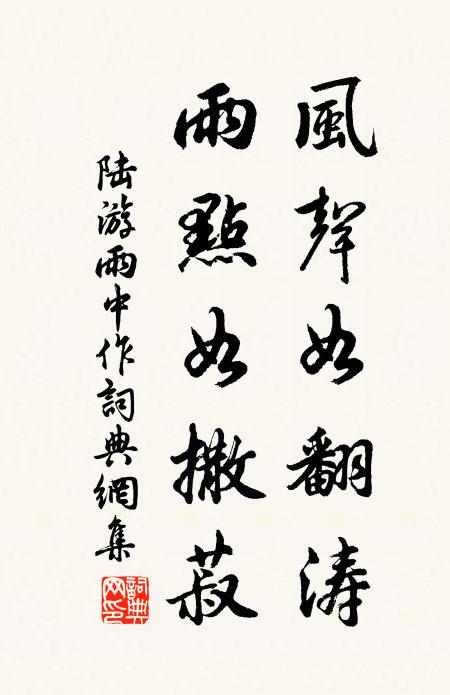 風聲如翻涛
雨點如撒菽
陆游雨中作詞典網集
詞典網印